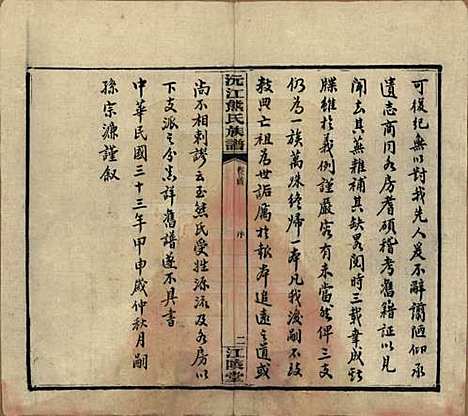 可復紀無以對我先人爰不辭谫陋仰承
遺志商同各房耆碩稽考舊籍證以見
聞去其蕪雜補其缺畧閱時三載韋成
雖於義例謹嚴容有未當然俾三支
仍為一族萬殊終歸一本凡我後嗣不致
數典亡祖為世詬厲於報本追遠之道或
尚不相剌謬云至熊氏受姓源流及各房以
下支派之分具詳舊譜遂不具書
中華民國三十三年甲申歲仲秋月嗣
孫宗濂謹叙
沅江熊氏族譜
卷首
序
二
江陵堂